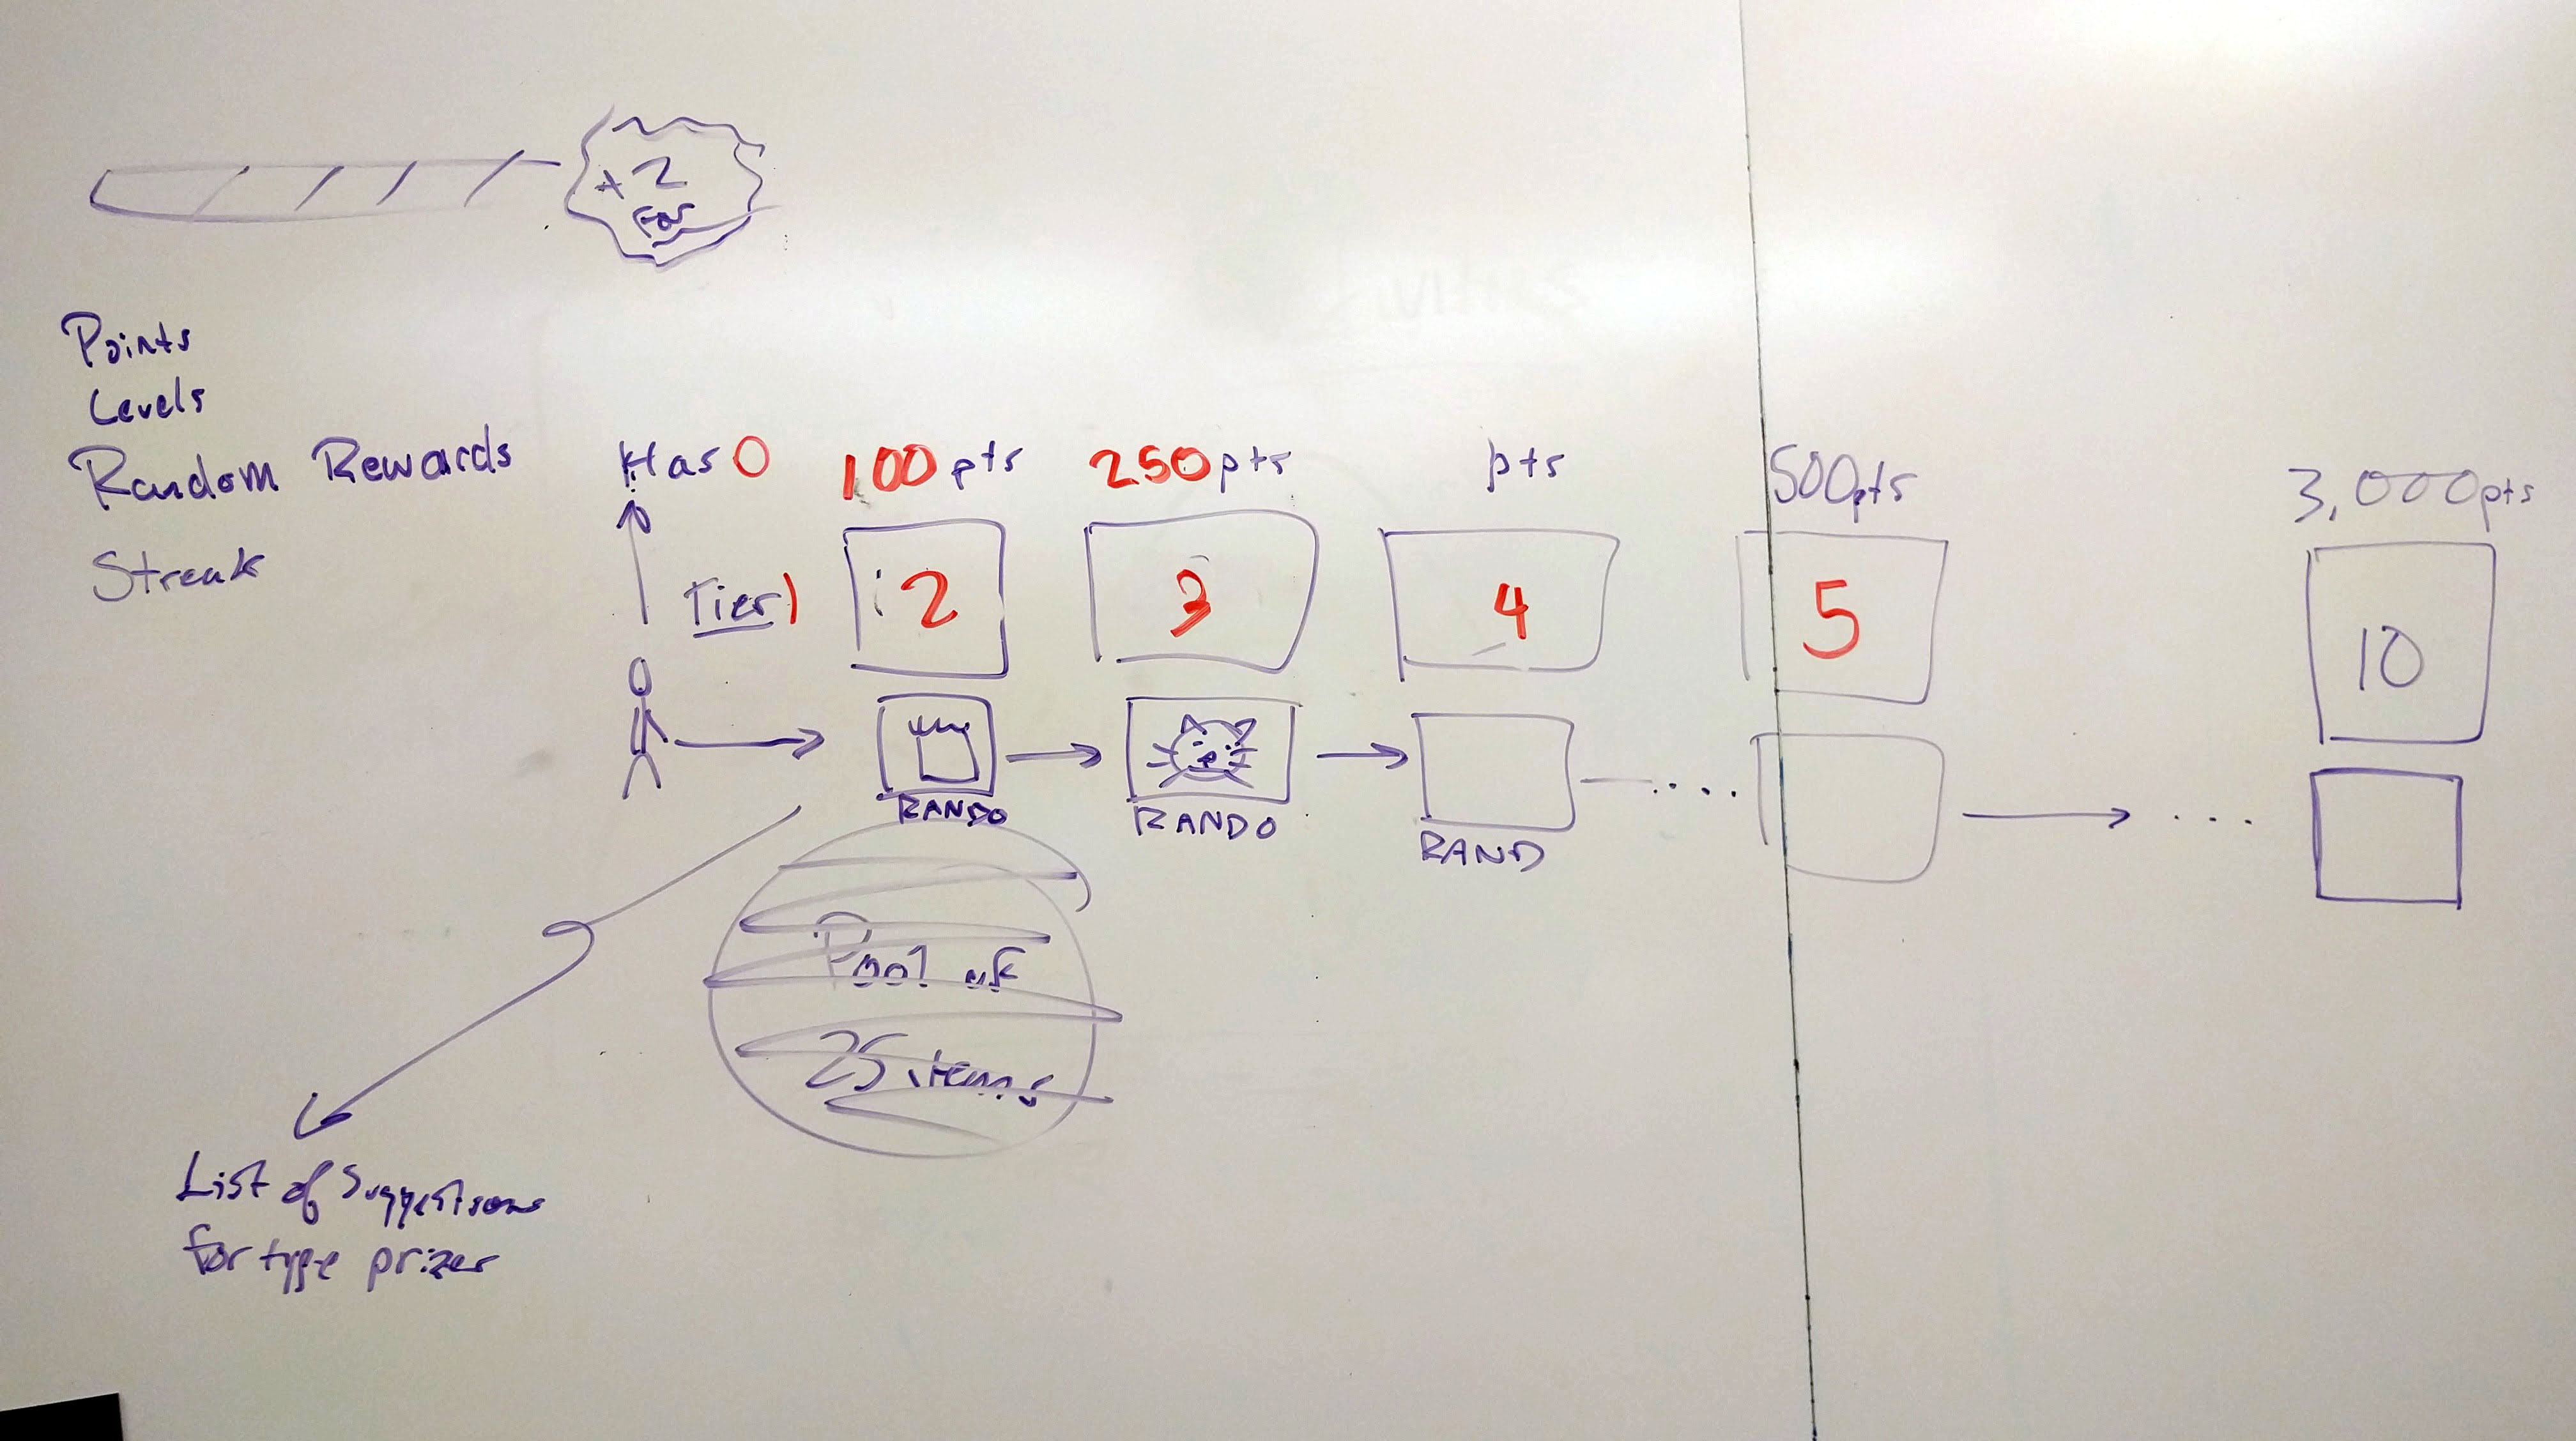 +2
for
Points
Levels
Random Rewards
Streak
Has 0
100 pts
250 pts
pts
500pts
3,000pts
Tier 1
2
3
4
5
10
RANDO
RANDO
RAND
Pool of
25 items
List of Suggestions
for type prizes